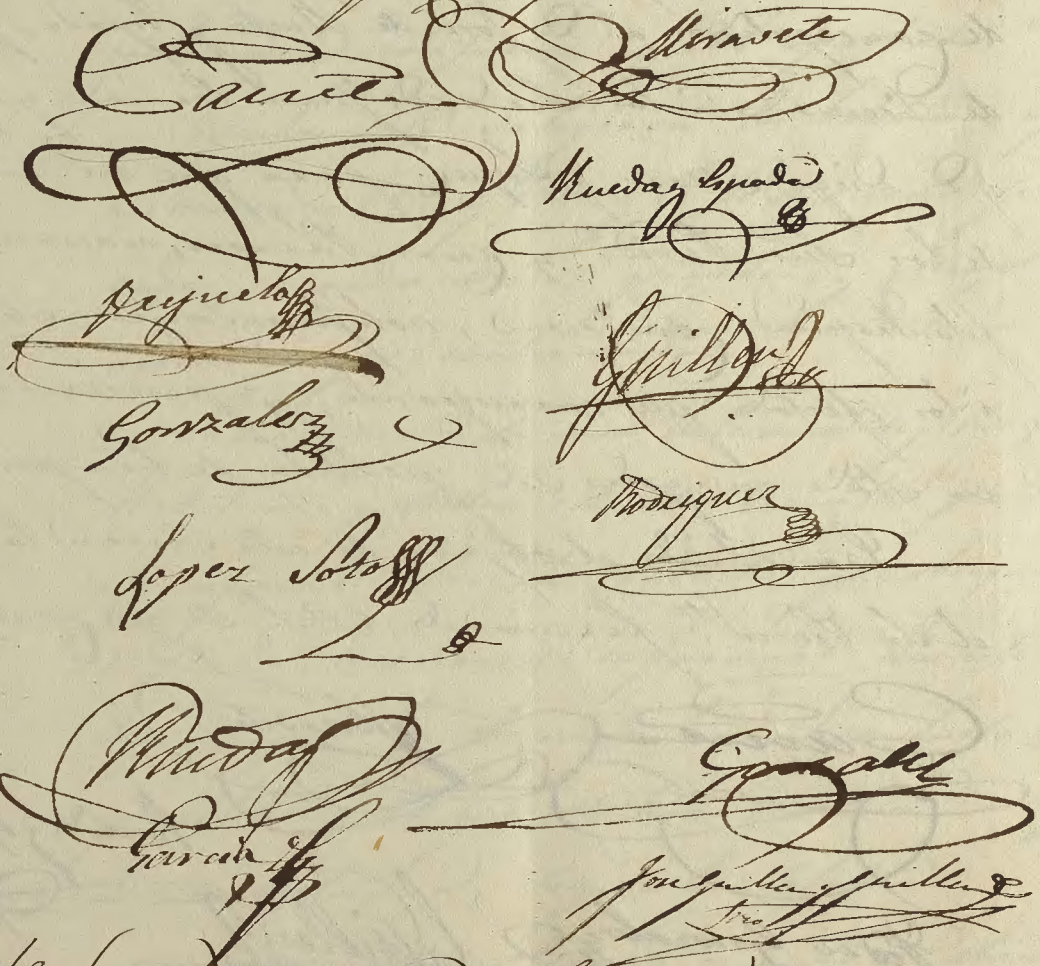 Miravete
Rueda y Espada
Guillen
Gonzalez
Rodriguez
Lopez Soto
Rueda
Gonzalez
Garcia
Jose Guillen y Guillen
Srio